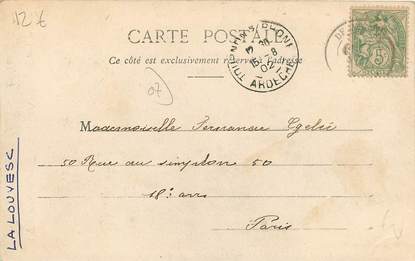 12 €
CARTE POSTALE
Ce côté est exclusivement réservé à l'adresse
15 -8
02
ARDECHE
5
07
Mademoiselle
50 Rue du simplon 50
18e arr
Paris
LA LOUVESC